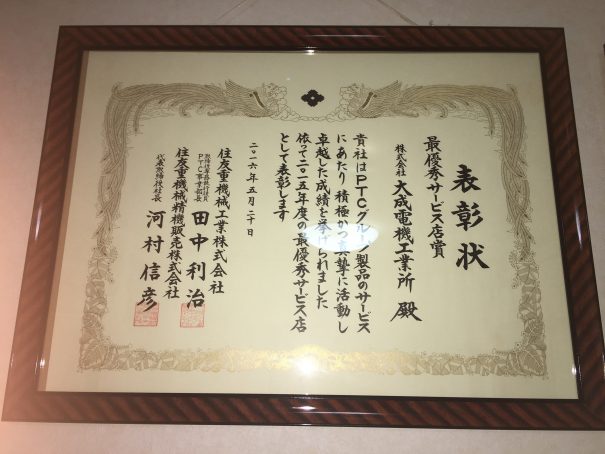 表彰状
最優秀サービス店賞
株式会社 大成電機工業所 殿
貴社はPTCグループ製品のサービス
にあたり積極かつ真摯に活動し
卓越した成績を挙げられました
依って二〇一五年度の最優秀サービス店
として表彰します
二〇一六年五月二十日
住友重機械工業株式会社
取締役専務執行役員
PTC事業部長
田中利治
住友重機械精機販売株式会社
代表取締役社長
河村信彦